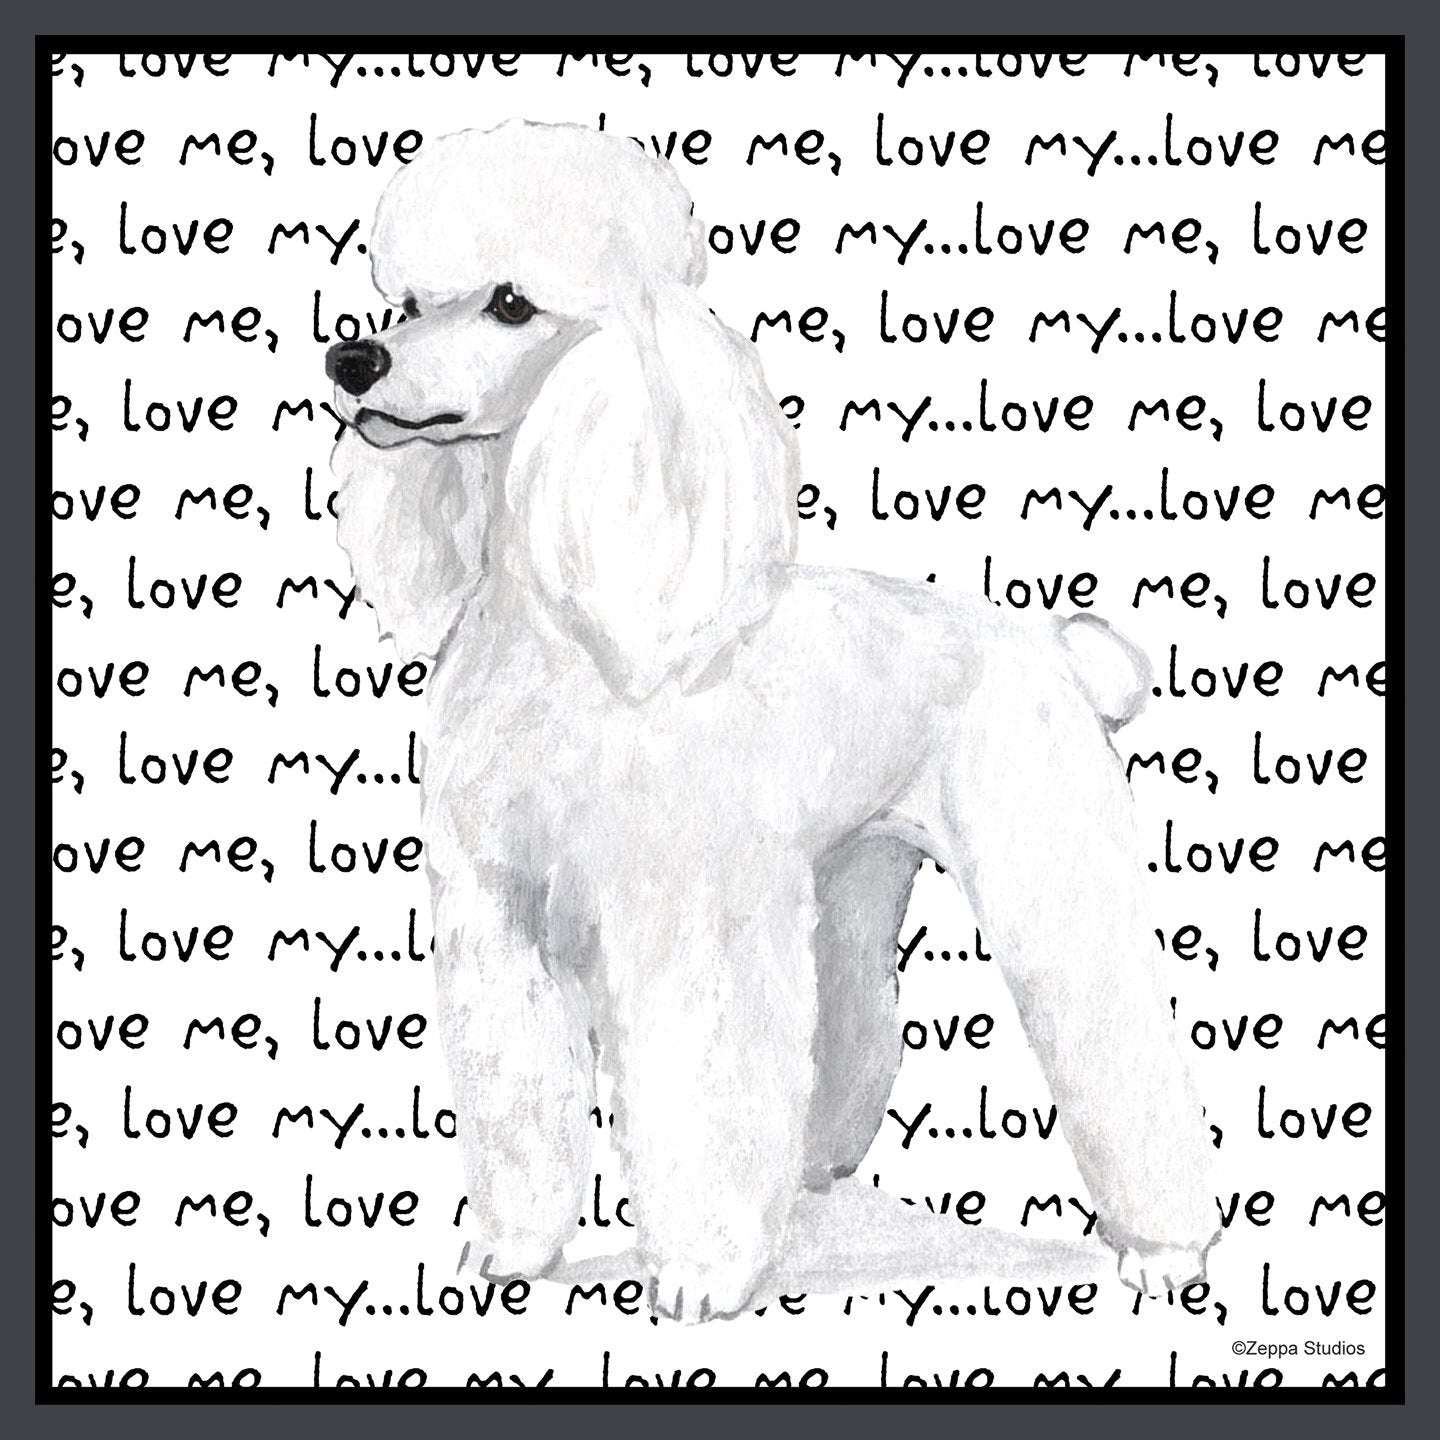 e, love my...love me, love my...love me, love
ove me, love ove me, love my...love me
e, love my. ove my...love me, love
ove me, lov me, love my...love me
e, love my e my...love me, love
ove me, lo e, love my...love me
e, love my. love me, love
ove me, love .love me
e, love my...l me, love
ove me, love .love me
e, love my...l y...l e, love
ove me, love ove ove me
e, love my...lo y...lov , love
ove me, love .lo ve my ve me
e, love my...love me, e my...love me, love
©Zeppa Studios
ove me, love my...love me, love my...love me